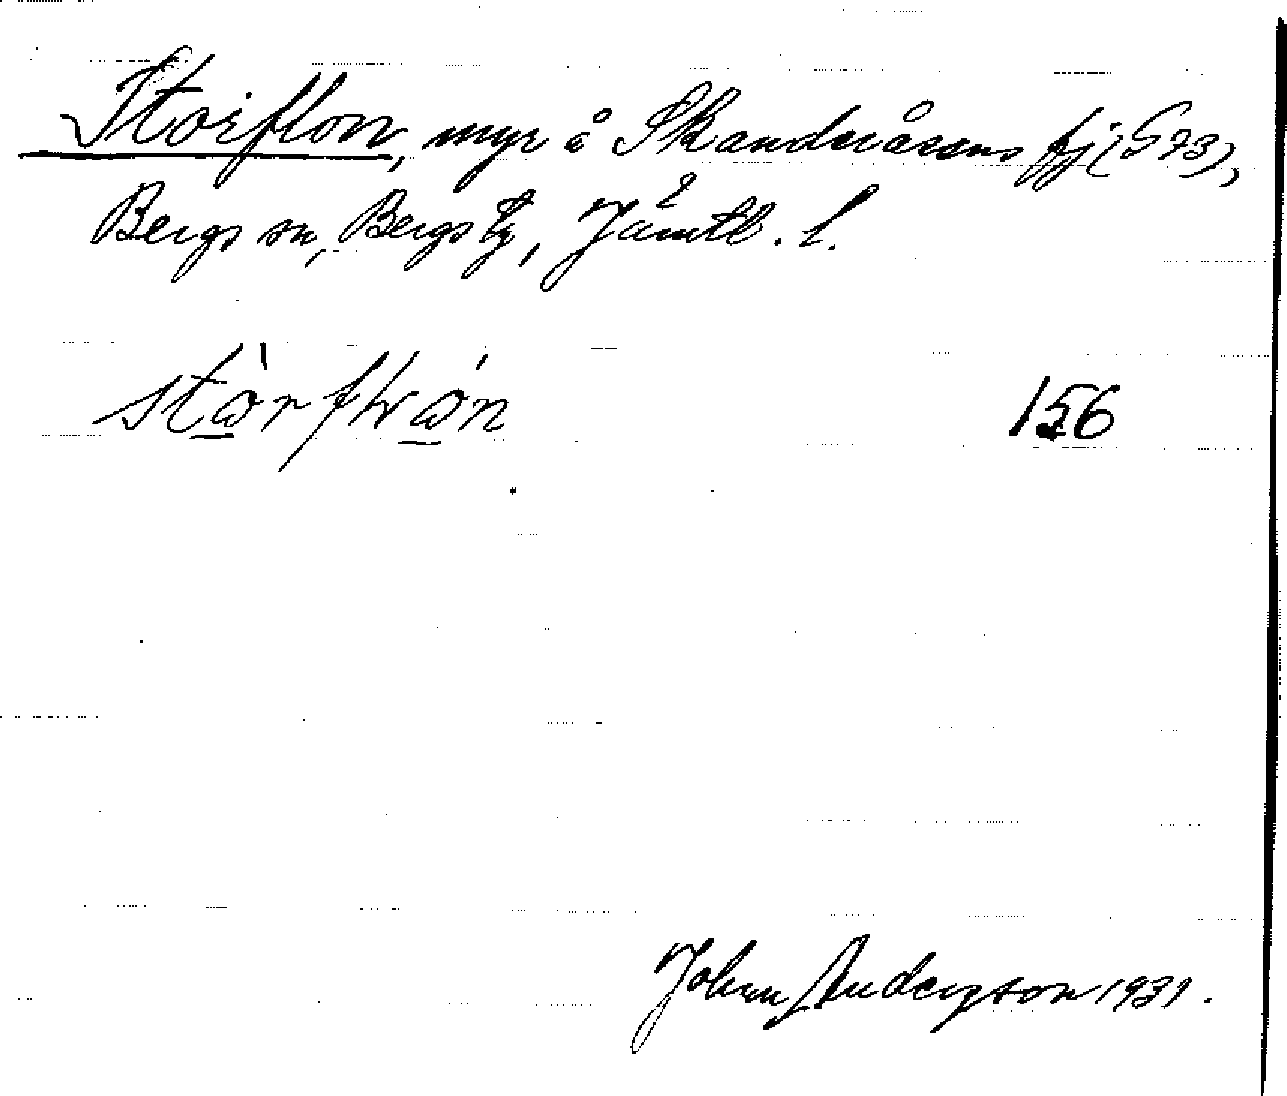 Storflon, myr å Skanderåsens fj (573),
Bergs sn, Bergs tg, Jämtl. l.
156
Johan Anderzson 1931.